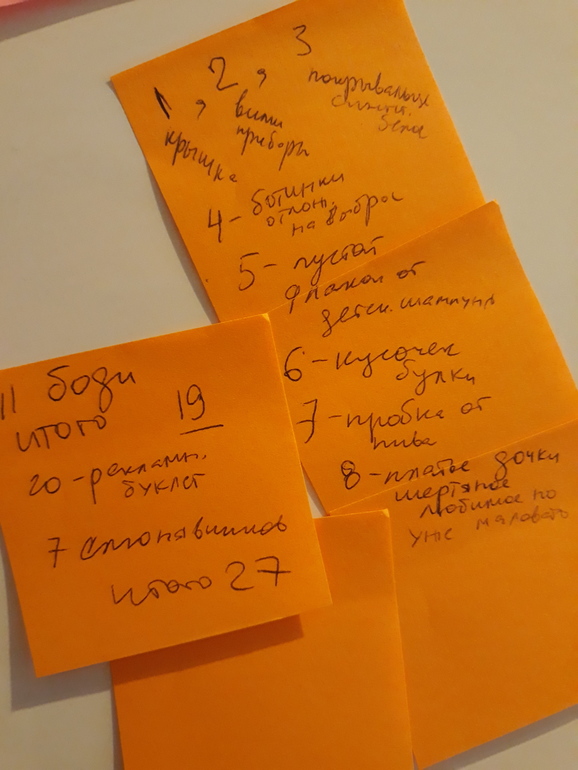 1, 2, 3
крышка
вилки
приборы
покрывальце
4 - ботинки
отлож.
на выброс
5 - пустой
флакон от
детск. шампуня
6 - кусочек
булки
7 - пробка от
пива
8 - платье дочки
шерстяное
любимое но
уже маловато
11 боди
итого 19
20 - рекламн.
буклет
7 слюнявчиков
итого 27